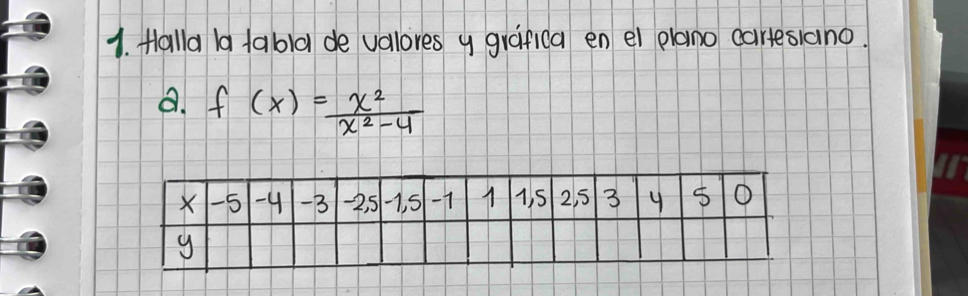 1. Halla la tabla de valores y gráfica en el plano cartesiano.
a. f (x) = x²/x² - 4
x -5 -4 -3 -2,5 -1,5 -1 1 1,5 2,5 3 4 5 0
y